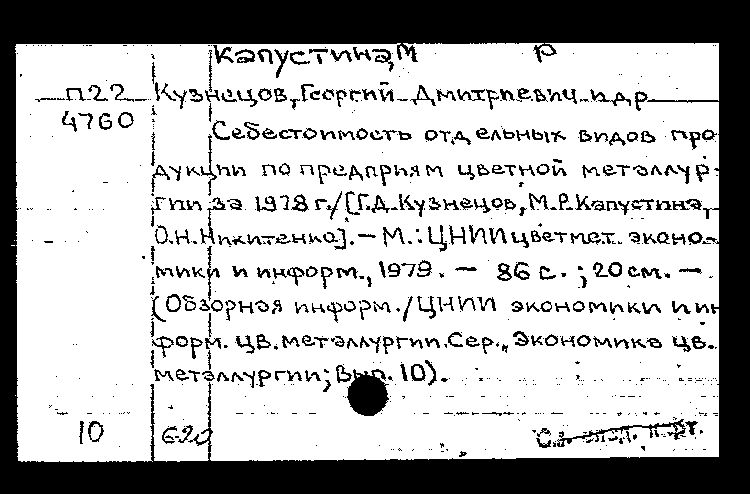 Капустина, М Р
п22 Кузнецов, Георгий Дмитриевич и др
4760 Себестоимость отдельных видов про
дукции по предприям цветной металлур-
гии за 1978 г./[Г.Д.Кузнецов, М.Р.Капустина,
О.Н.Никитенко]. – М.: ЦНИИцветмет. эконо-
мики и информ., 1979. – 86 с. ; 20 см. –
(Обзорная информ./ЦНИИ экономики и ин
форм. цв. металлургии. Сер., Экономика цв.
металлургии; Вып. 10).
10 620